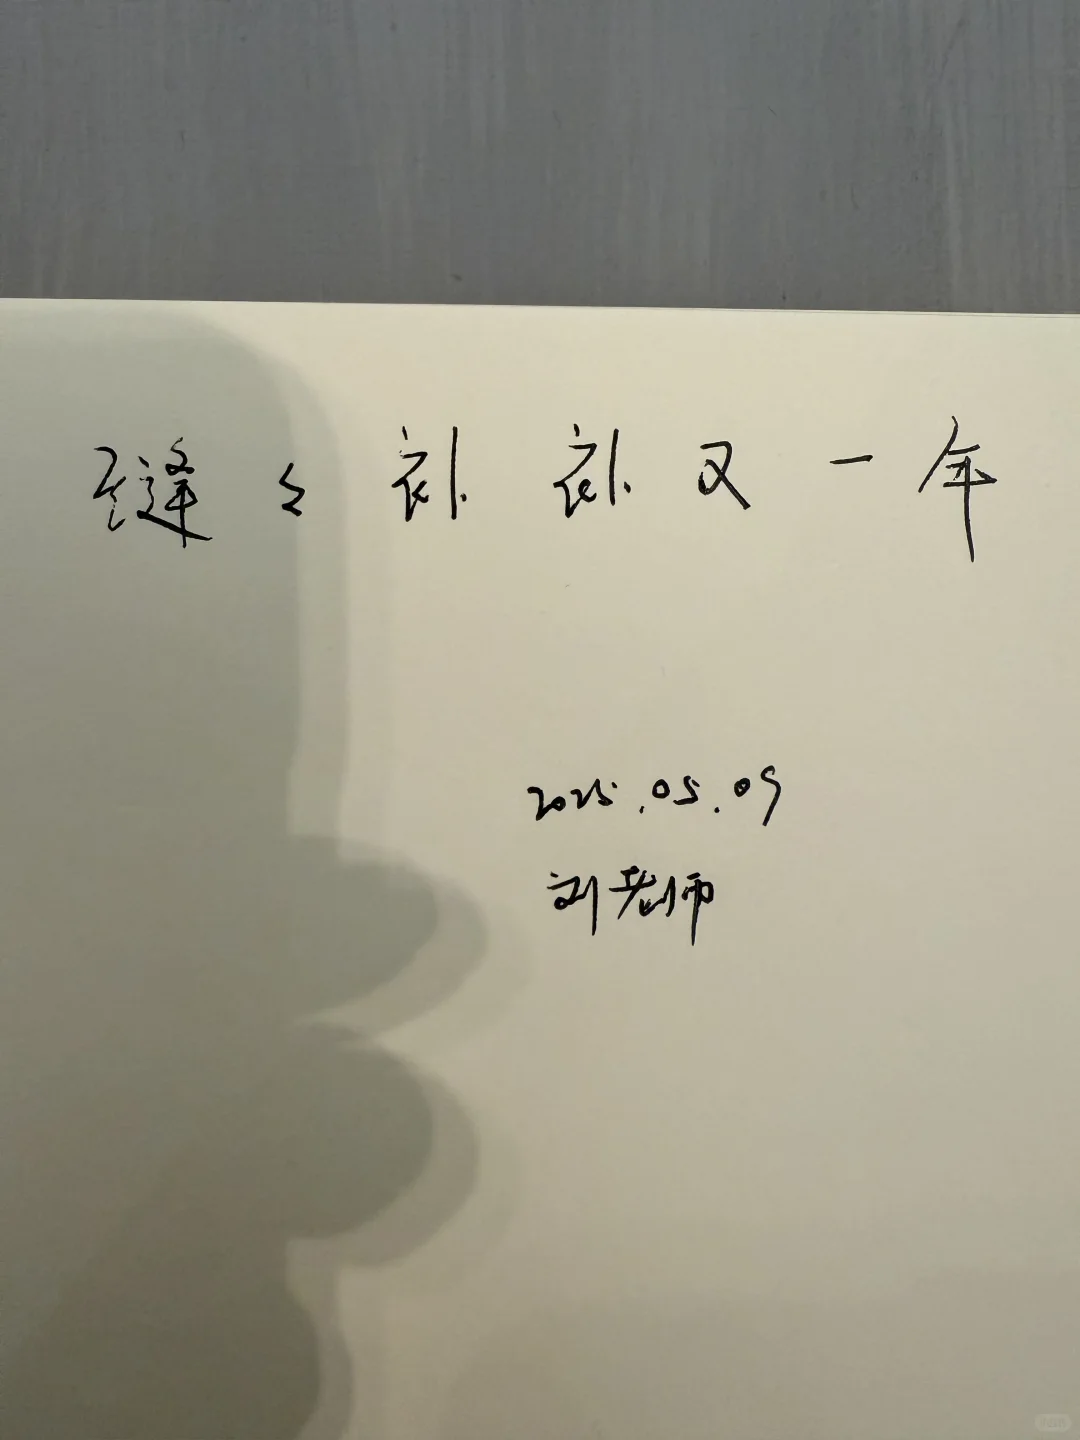 缝々补补又一年
2025.05.09
刘老师